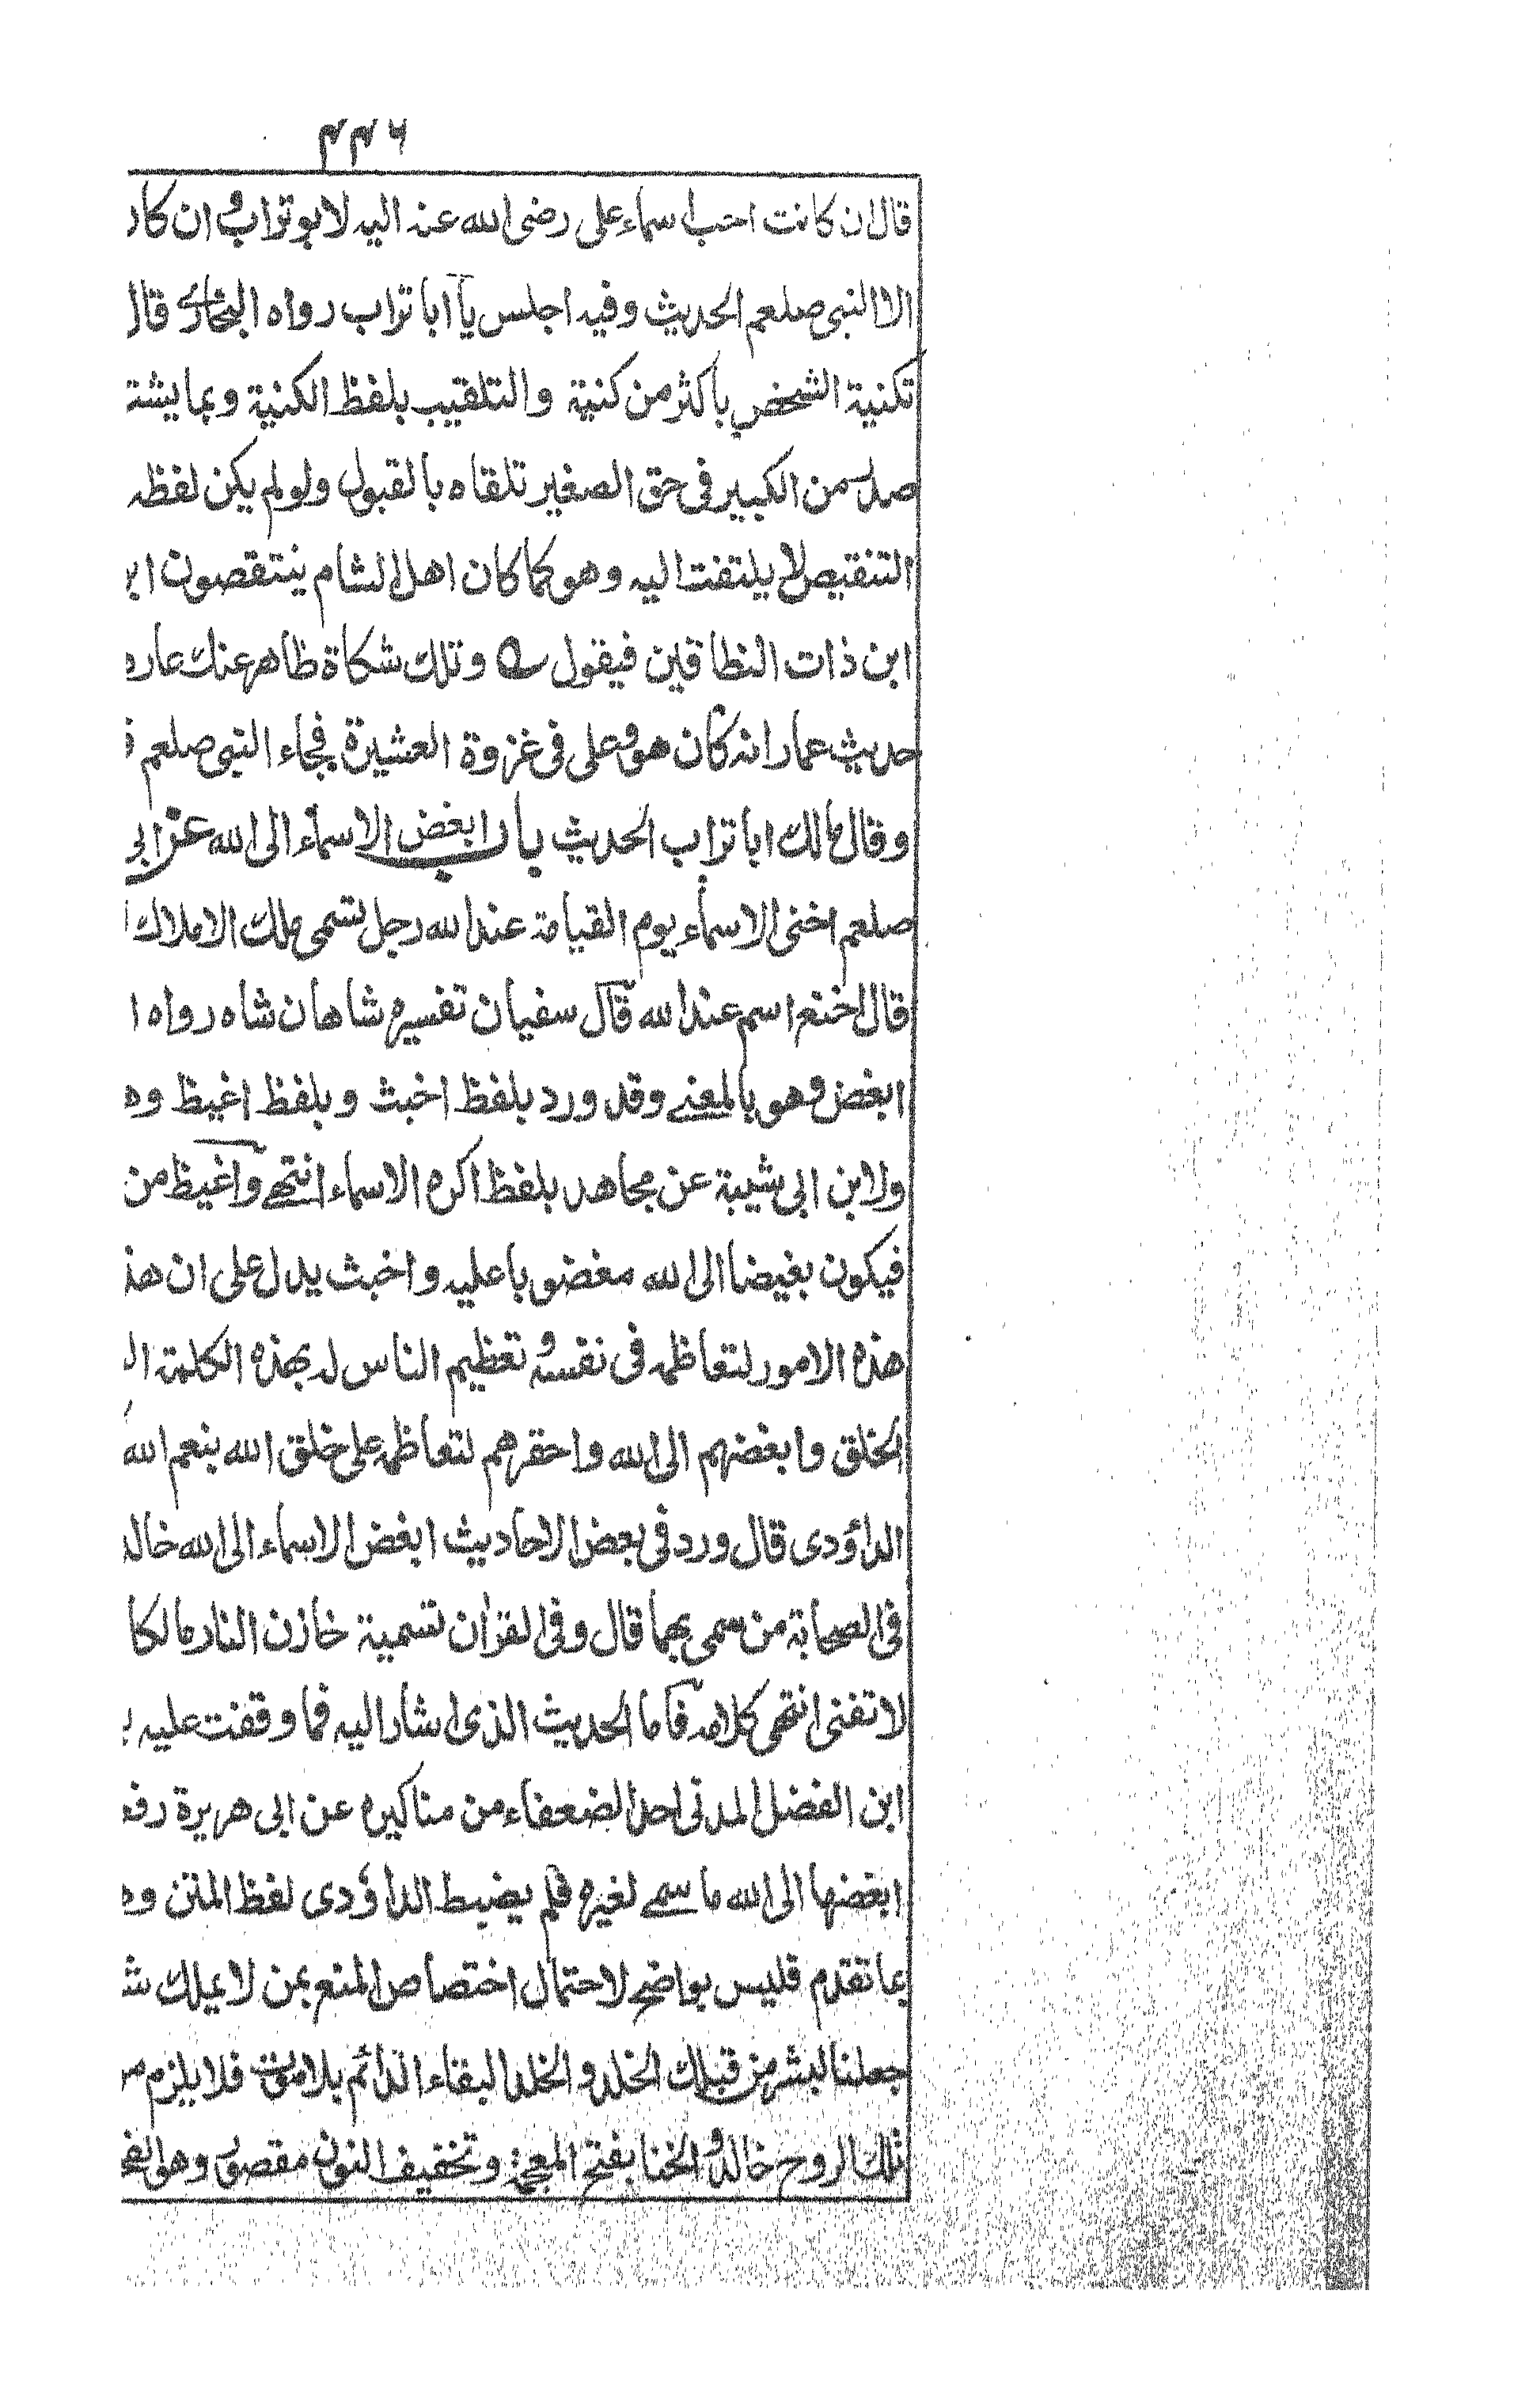 ۲۳۶
قال ان كانت احب اسماء على رضى الله عنه اليه لابو تراب و ان كان
الا النبى صلعم الحديث وفيه اجلس يا ابا تراب رواه البخارى قال
تكنية الشخص باكثر من كنية والتلقيب بلفظ الكنية وبما يشتق
صدر من الكبير فى حق الصغير تلقاه بالقبول ولو لم يكن لفظه
التنقيص لا يلتفت اليه وهو كما كان اهل الشام ينتقصون ابن
ابن ذات النطاقين فيقول وتلك شكاة ظاهر عنك عارها
حديث عمار انه كان هو وعلى فى غزوة العشيرة فجاء النبى صلعم
وقال مالك ابا تراب الحديث باب ابغض الاسماء الى الله عن ابى
صلعم اخنى الاسماء يوم القيامة عند الله رجل تسمى ملك الاملاك
قال اخنع اسم عند الله قال سفيان تفسيره شاهان شاه رواه ا
ابغض وهو بالمعنى وقد ورد بلفظ اخبث وبلفظ اغيظ وه
ولابن ابى شيبة عن مجاهد بلفظ اكره الاسماء انتهى واغيظ من
فيكون بغيضا الى الله مغضوبا عليه واخبث يدل على ان هذ
هذه الامور لتعاظمه فى نفسه وتعظيم الناس له بهذه الكلمة ال
الخلق وابغضهم الى الله واحقرهم لتعاظمه على خلق الله بنعم الله
الداؤدى قال ورد فى بعض الاحاديث ابغض الاسماء الى الله خالد
فى الصحابة من سمى بهما قال وفى القران تسمية خازن النار مالكا
لا تفنى انتهى كلامه فاما الحديث الذى اشار اليه فما وقفت عليه
ابن الفضل المدنى احد الضعفاء من مناكيره عن ابى هريرة رفعه
ابغضها الى الله ما سمى لغيره فلم يضبط الداؤدى لفظ المتن وه
بما تقدم فليس بواضح لاحتمال اختصاص المنع بمن لا يملك ش
جعلنا لبشر من قبلك الخلد والخلد البقاء الدائم بلا موت فلا يلزم من
تلك الروح خالد والخنا بفتح المعجمة وتخفيف النون مقصور وهو الفح